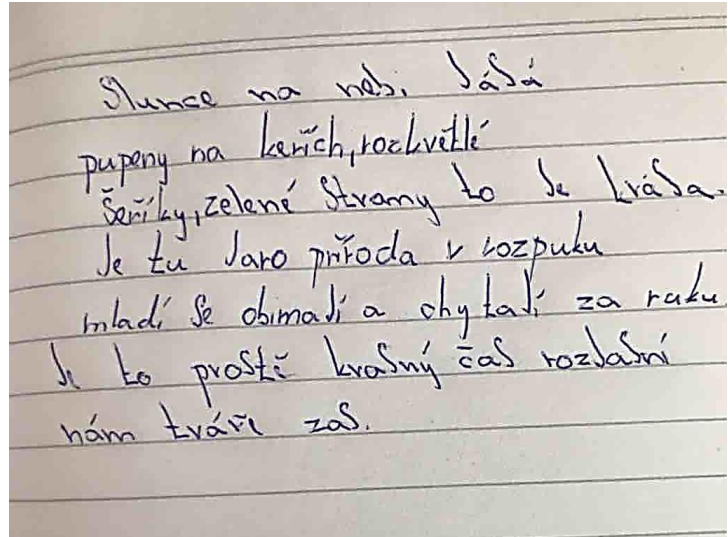 Slunce na nebi Jásá
pupeny na keřích, rozkvětlé
šeříky, zelené Stromy to Je krása.
Je tu Jaro příroda v rozpuku
mladí Se obimaJí a chytaJí za ruku
Je to prostě kraSný čaS rozJaSní
nám tváře zaS.